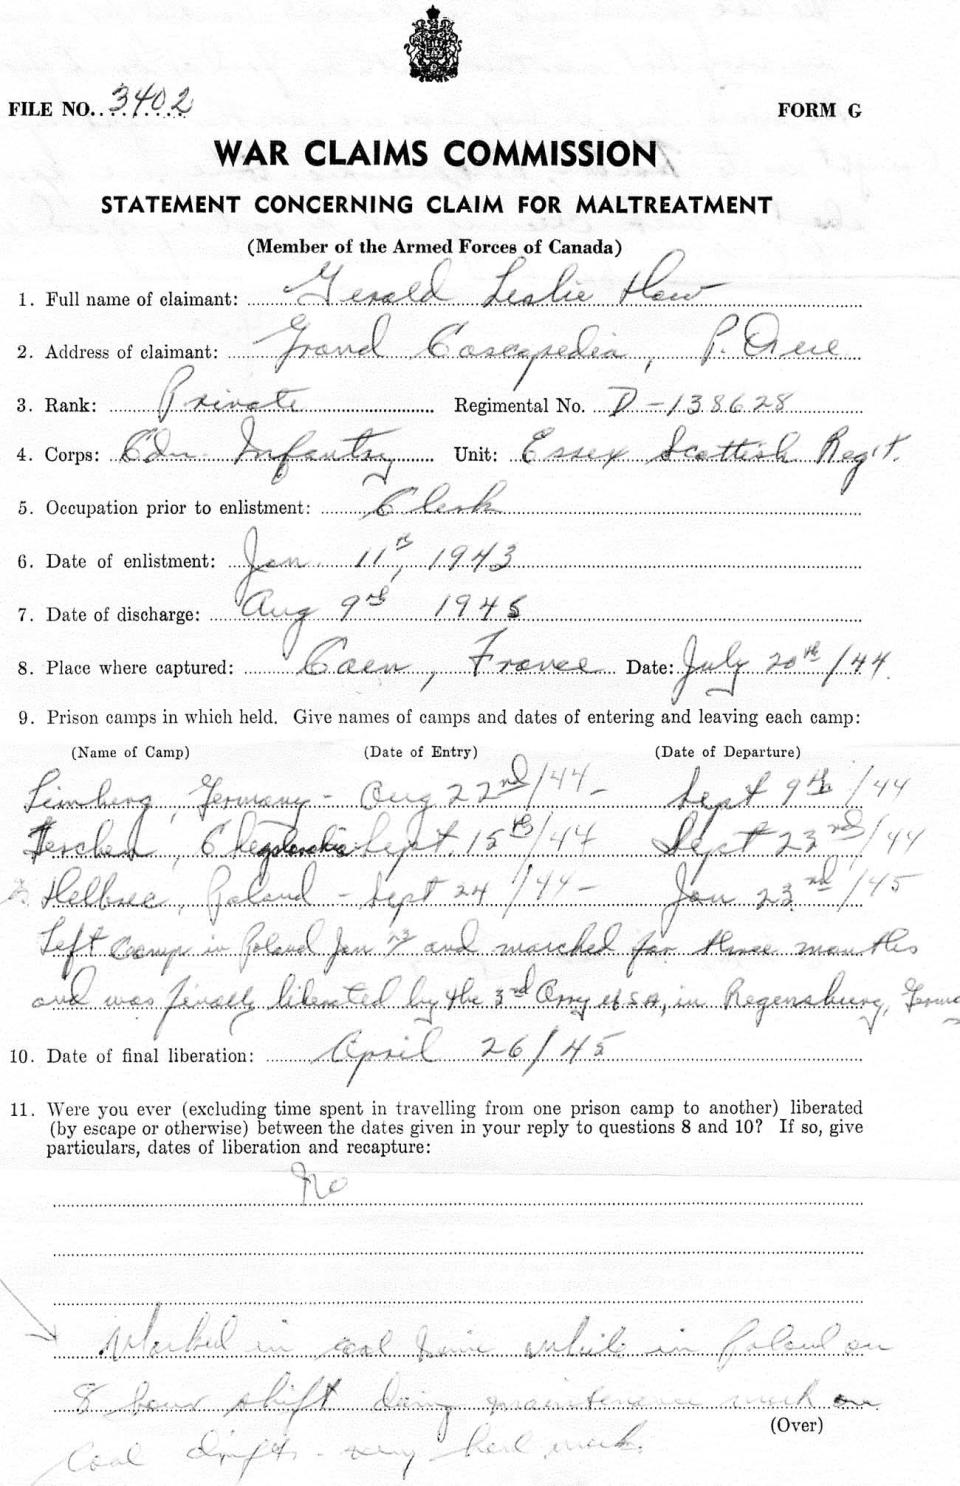 FILE NO. 3402
FORM G
WAR CLAIMS COMMISSION
STATEMENT CONCERNING CLAIM FOR MALTREATMENT
(Member of the Armed Forces of Canada)
1. Full name of claimant: Gerald Leslie How
2. Address of claimant: Grand Cascapedia, P. Que
3. Rank: Private Regimental No. D-138628
4. Corps: Cdn Infantry Unit: Essex Scottish Reg't.
5. Occupation prior to enlistment: Clerk
6. Date of enlistment: Jan 11th, 1943
7. Date of discharge: Aug 9th 1945
8. Place where captured: Caen, France Date: July 20th/44.
9. Prison camps in which held. Give names of camps and dates of entering and leaving each camp:
(Name of Camp) (Date of Entry) (Date of Departure)
Limberg, Germany - Aug 22nd/44 - Sept 9th/44
Teschen, Sept. 15th/44 Sept 23rd/44
Poland - Sept 24/44 - Jan 23nd/45
Left Camp in Poland Jan and marched for three months
and was finally liberated by the 3rd Army U.S.A, in Regensburg,
10. Date of final liberation: April 26/45
11. Were you ever (excluding time spent in travelling from one prison camp to another) liberated
(by escape or otherwise) between the dates given in your reply to questions 8 and 10? If so, give
particulars, dates of liberation and recapture:
No
Worked in coal mine while in Poland on
8 hour shift doing maintenance work on
(Over)
Coal drifts - very hard work.